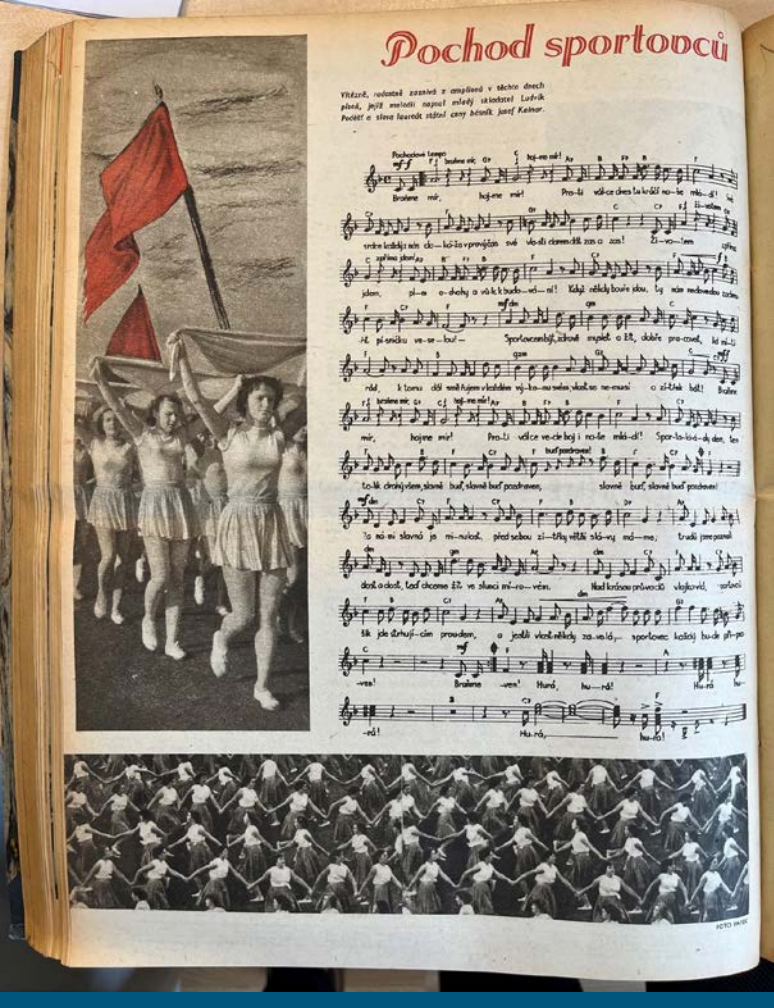 Pochod sportovců
Vítězně, radostně zaznívá z amplionů v těchto dnech
píseň, jejíž melodii napsal mladý skladatel Ludvík
Podéšť a slova laureát státní ceny básník Josef Kainar.
Pochodové tempo
braňme mír, hoj-me mír!
Braňme mír, hoj-me mír! Pro-ti vál-ce dnes tu kráčí na-še mlá-dí!
srdce každý z nás do-ká-že v pravý čas své vla-sti darem dát zas a zas! Ži-vo-tem
zpříma jdem!
jdem, o-dvahy a vůle k budo-vá-ní! Když někdy bouře jdou, ty nám nedovedou
pí-sničku ve-se-lou!— Sportovcem být, zdravě myslet a žít, dobře pracovat,
rád, k tomu dál směřujem v každém vý-ko-nu svém, vlast se ne-musí o zí-třek bát! Braňme
braňme mír, hoj-me mír!
mír, hojme mír! Pro-ti válce ve-de boj i na-še mlá-dí! Spar-ta-ki-á-dy den, ten
buď pozdraven!
to-lik drahý všem, slavně buď, slavně buď pozdraven, slavně buď, slavně buď pozdraven!
Za ná-mi slavná je mi-nulost, před sebou zí-třky větší slá-vy má-me; trudů jsme poznali
dost a dost, teď chceme žít ve slunci mí-ro-vém. Nad krásou průvodů vlajkoví,
šik jde strhují-cím proudem, a jestli vlast někdy za-vo-lá,— sportovec každý bu-de při-pra
-ven! Braňme -ven! Hurá, hu—rá! Hu-rá hu-
-rá! Hu-rá, hu-rá!
FOTO